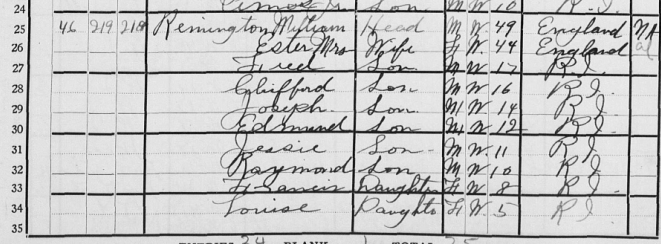 24 Son M W 10 R.I.
25 46 219 218 Remington William Head M W 49 England NA
26 Ester Mrs Wife F W 44 England al
27 Fred Son M W 17 R.I.
28 Clifford Son M W 16 R.I.
29 Joseph Son M W 14 R.I.
30 Edmund Son M W 12 R.I.
31 Jessie Son M W 11 R.I.
32 Raymond Son M W 10 R.I.
33 Francis Daughter F W 8 R.I.
34 Louise Daughte F W 5 R.I.
35